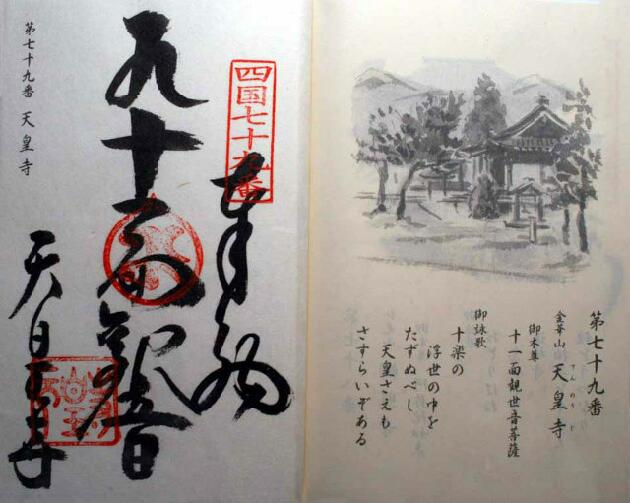 第七十九番
金華山 天皇寺
てんのうじ
御本尊
十一面観世音菩薩
御詠歌
十楽の
浮世の中を
たずぬべし
天皇さえも
さすらいぞある
四国七十九番
奉納
十一面観音
天皇寺
第七十九番 天皇寺